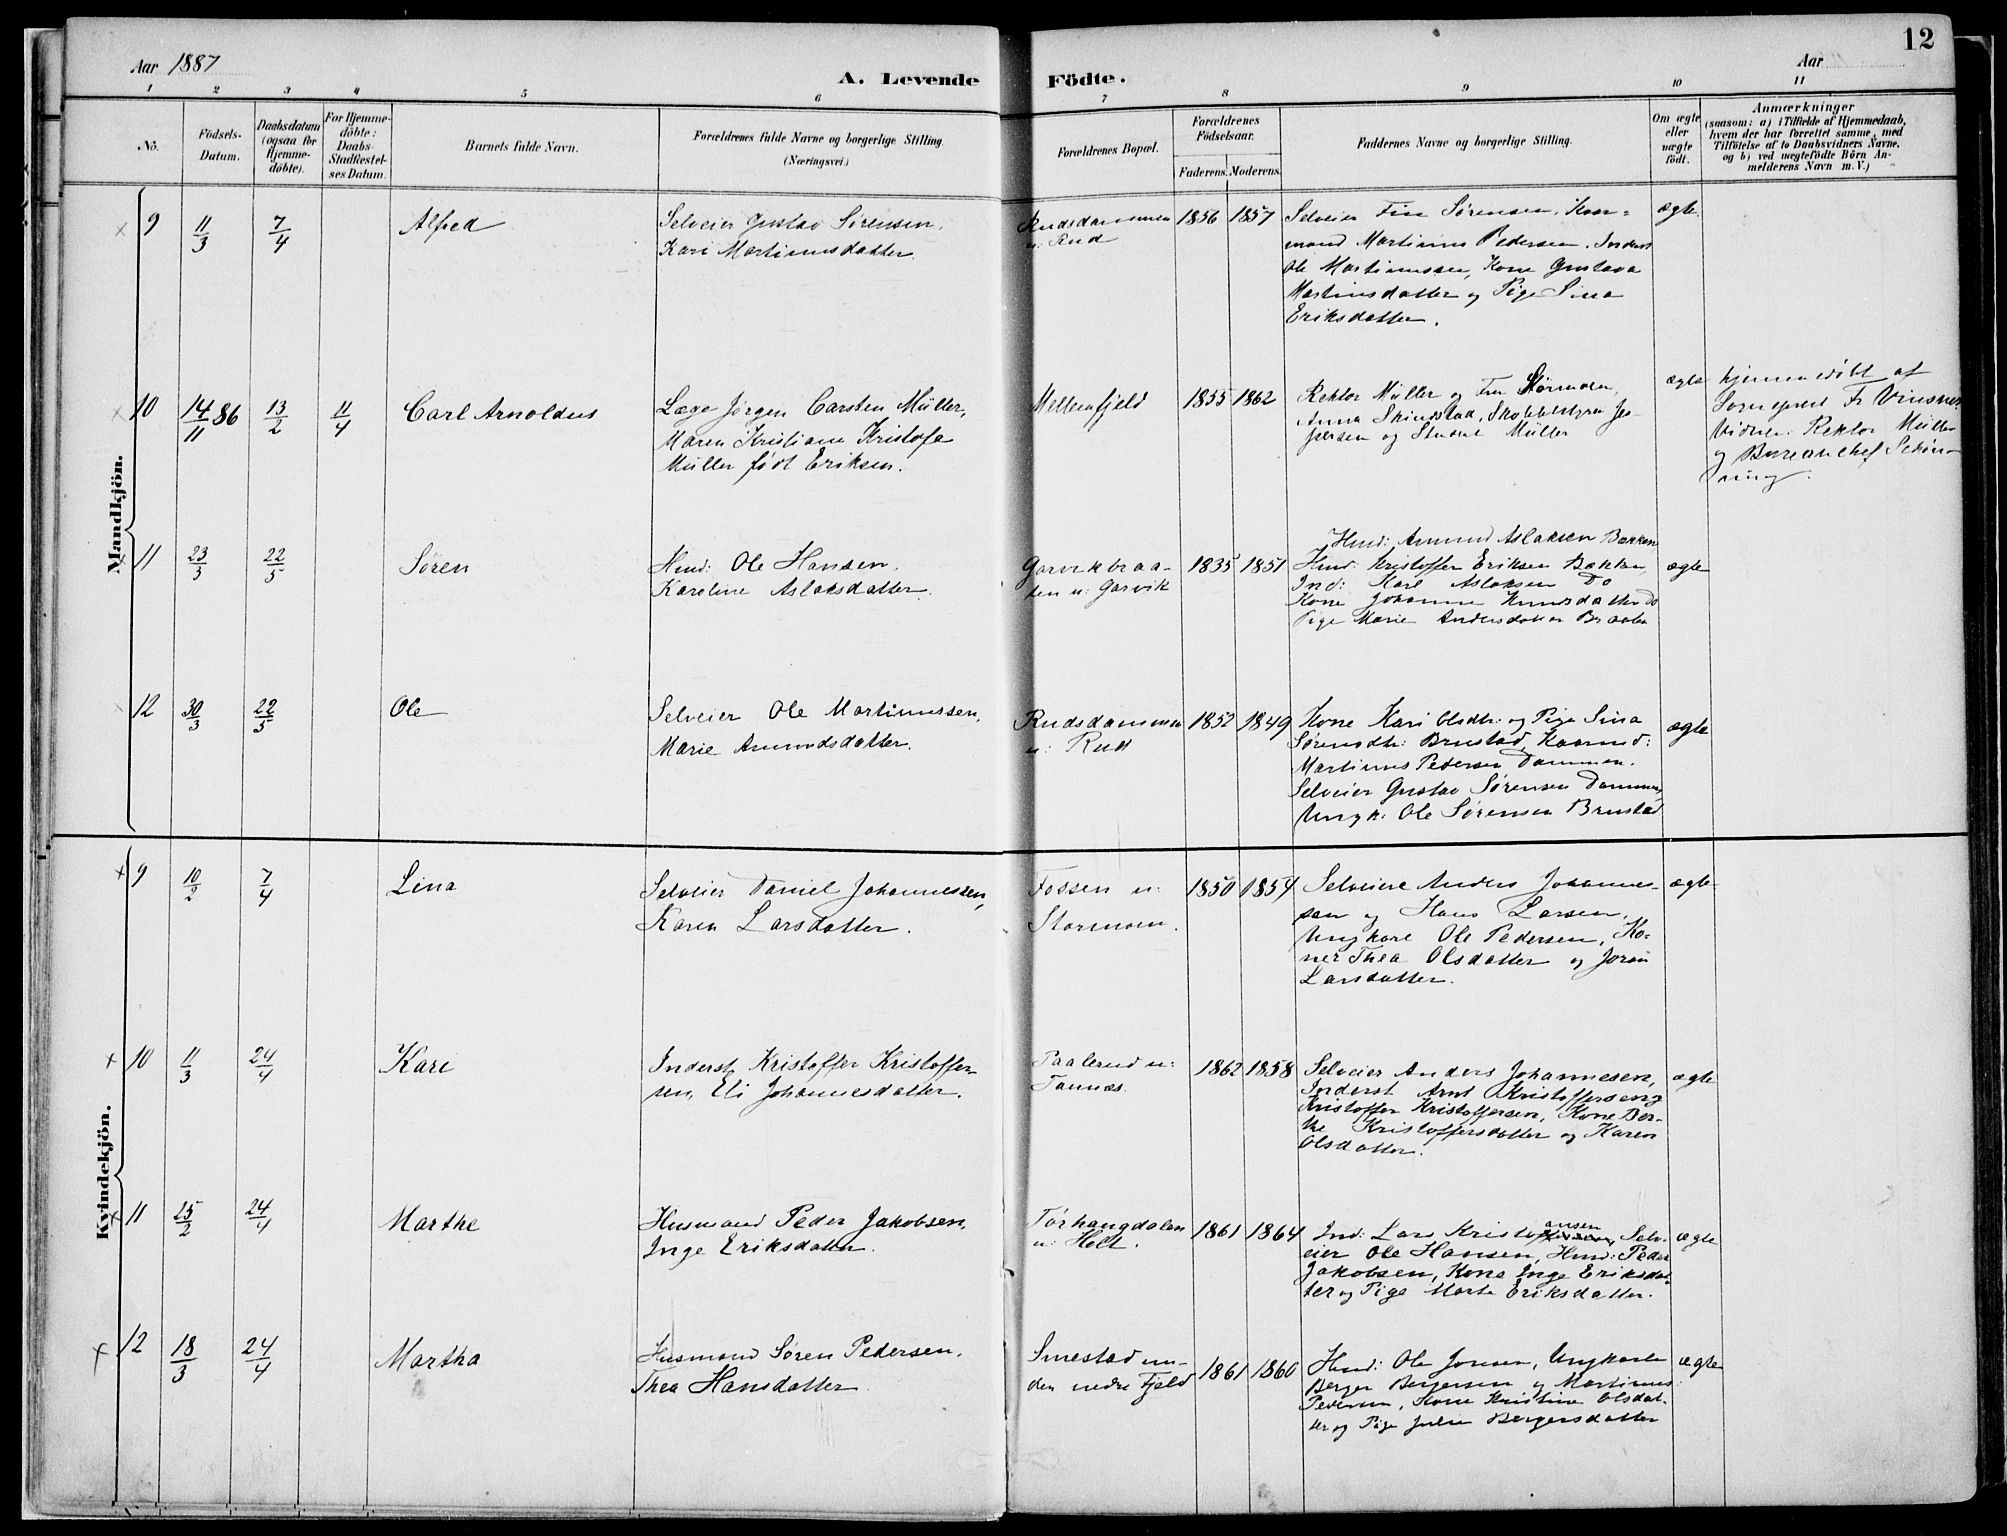 12
Aar 1887
A. Levende Födte.
Aar
1 2 3 4 5 6 7 8 9 10 11
No.
Födsels-
Datum.
Daabsdatum
(ogsaa for
Hjemme-
döbte).
For Hjemme-
döbte:
Daabs-
Stadfæstel-
ses Datum.
Barnets fulde Navn.
Forældrenes fulde Navne og borgerlige Stilling
(Næringsvei)
Forældrenes Bopæl.
Forældrenes
Födselsaar.
Faderens. Moderens.
Faddernes Navne og borgerlige Stilling.
Om ægte
eller
uægte
födt.
Anmærkninger
(saasom: a) i Tilfælde af Hjemmedaab,
hvem der har forrettet samme, med
Tilföielse af to Daabsvidners Navne,
og b) ved uægtefödte Börn An-
melderens Navn m. V.)
Mandkjön.
× 9 11/3 7/4 Alfred
Selveier Gustav Sørensen,
Kari Martinusdatter
Rudsdammen
u: Rud
1856 1857
Selveier Finn Sørensen, Kaar-
mand Martinus Pedersen, Inderst
Ole Martinussen, Kone Gustava
Martinusdatter og Pige Sina
Eriksdatter.
ægte
× 10 14/11 86 13/2 11/4 Carl Arnoldus
Læge Jørgen Carsten Müller,
Maren Kristiane Kristofa
Müller født Eriksen.
Mellemfjeld
1855 1862
Rektor Müller og Fru
Anna Skindstad, Skolebestyrer Jes-
persen og Student Müller
ægte
hjemmedøbt af
Sogneprest Fr. Vinsnes
Vidner: Rektor Müller
og Bureauchef Schøn-
ning.
11 23/3 22/5 Søren
Husd: Ole Hansen,
Karoline Aslaksdatter.
Garvikbraa-
ten u: Garvik
1835 1851
Husd: Amund Aslaksen Bakken
Husd: Kristoffer Eriksen Bakken,
Ind: Karl Aslaksen Do
Kone Johanne Knudsdatter Do
Pige Marie Andersdatter Braaten
ægte
12 30/3 22/5 Ole
Selveier Ole Martinussen,
Marie Amundsdatter.
Rudsdammen
u: Rud
1852 1849
Kone Kari Olsdtr: og Pige Sina
Sørensdtr: Brustad, Kaarmd:
Martinus Pedersen Dammen.
Selveier Gustav Sørensen Dammen,
Ungk: Ole Sørensen Brustad
ægte
Kvindekjön.
× 9 10/2 7/4 Lina
Selveier Daniel Johannessen,
Karen Larsdatter.
Fossen u:
Stormoen.
1850 1854
Selveiere Anders Johannes-
sen og Hans Larsen,
Ungkarl Ole Pedersen, Ko-
ner Thea Olsdatter og Joran
Larsdatter.
ægte
× 10 11/3 24/4 Kari
Inderst Kristoffer Kristoffer-
sen, Eli Johannesdatter.
Paalerud u:
Tannæs.
1862 1858
Selveier Anders Johannesen,
Inderst Arnt Kristoffersen og
Kristoffer Kristoffersen, Kone Ber-
the Kristoffersdatter og Karen
Olsdatter.
ægte
× 11 25/2 24/4 Marthe
Husmand Peder Jakobsen,
Inge Eriksdatter.
Tørhaugdalen
u: Holt.
1861 1864
ansen
Ind: Lars Kristoffersen, Selv-
eier Ole Hansen, Husd: Peder
Jakobsen, Kone Inge Eriksdat-
ter og Pige Marte Eriksdatter.
ægte
× 12 18/3 24/4 Martha
Husmand Søren Pedersen,
Thea Hansdatter
Smestad un-
der nedre Fjeld
1861 1860
Husd: Ole Jonsen, Ungkarle
Berger Bergersen og Martinus
Pedersen, Kone Kristine Olsdat-
ter og Pige Julie Bergersdatter
ægte